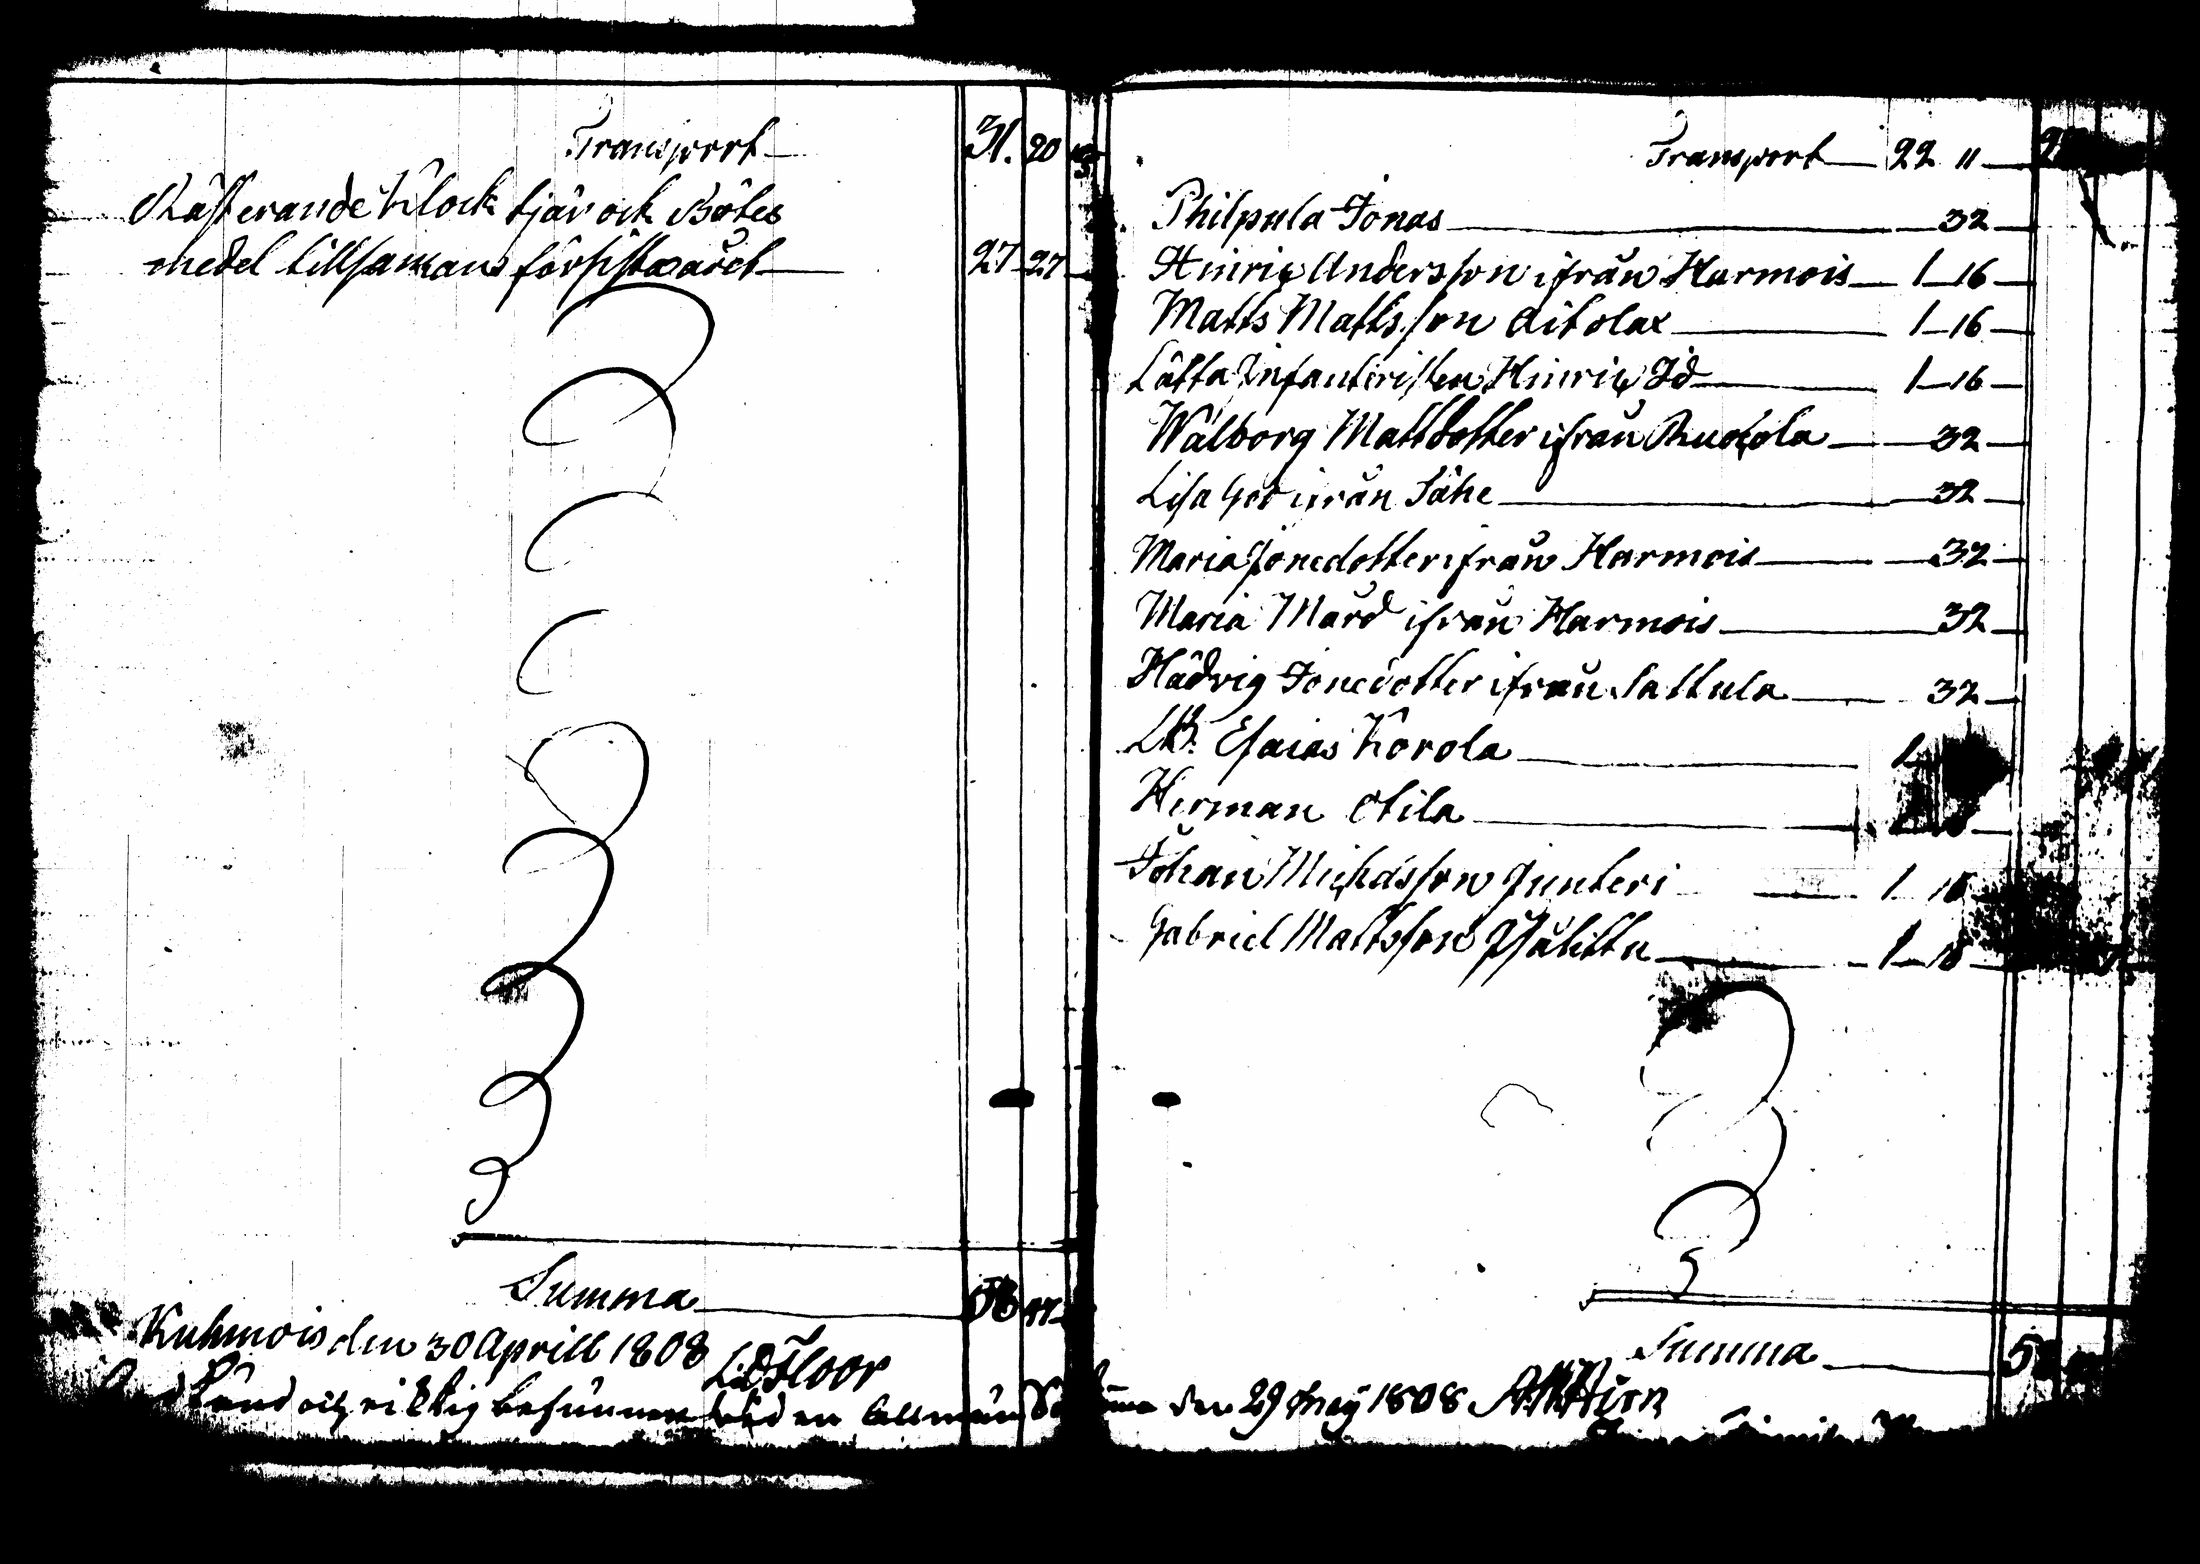 Transport 31. 20
Råsterande Klock tjär och Bötes
medel tillsamans förfistaåret 27 27
Summa 58 47
Kuhmois den 30 Aprill 1808
Floor
och riktig befunnen wid en allmän
Transport 22 11
Philpula Jonas 32
Hinric Andersson ifrån Harmois 1 16
Matts Mattsson Aitolax 1 16
Lätta Infanteristen Hinric Id 1 16
Walborg Mattdotter ifrån Ruokola 32
Lisa ifrån Sähe 32
Maria Jonedotter ifrån Harmois 32
Maria Mård ifrån Harmois 32
Hädvig Jonedotter ifrån Sattula 32
LB. Esaias Korola 1
Herman Otila
Johan Michäsfon Junteri 1 16
Gabriel Mattsson 1 16
Summa
den 29 Maij 1808